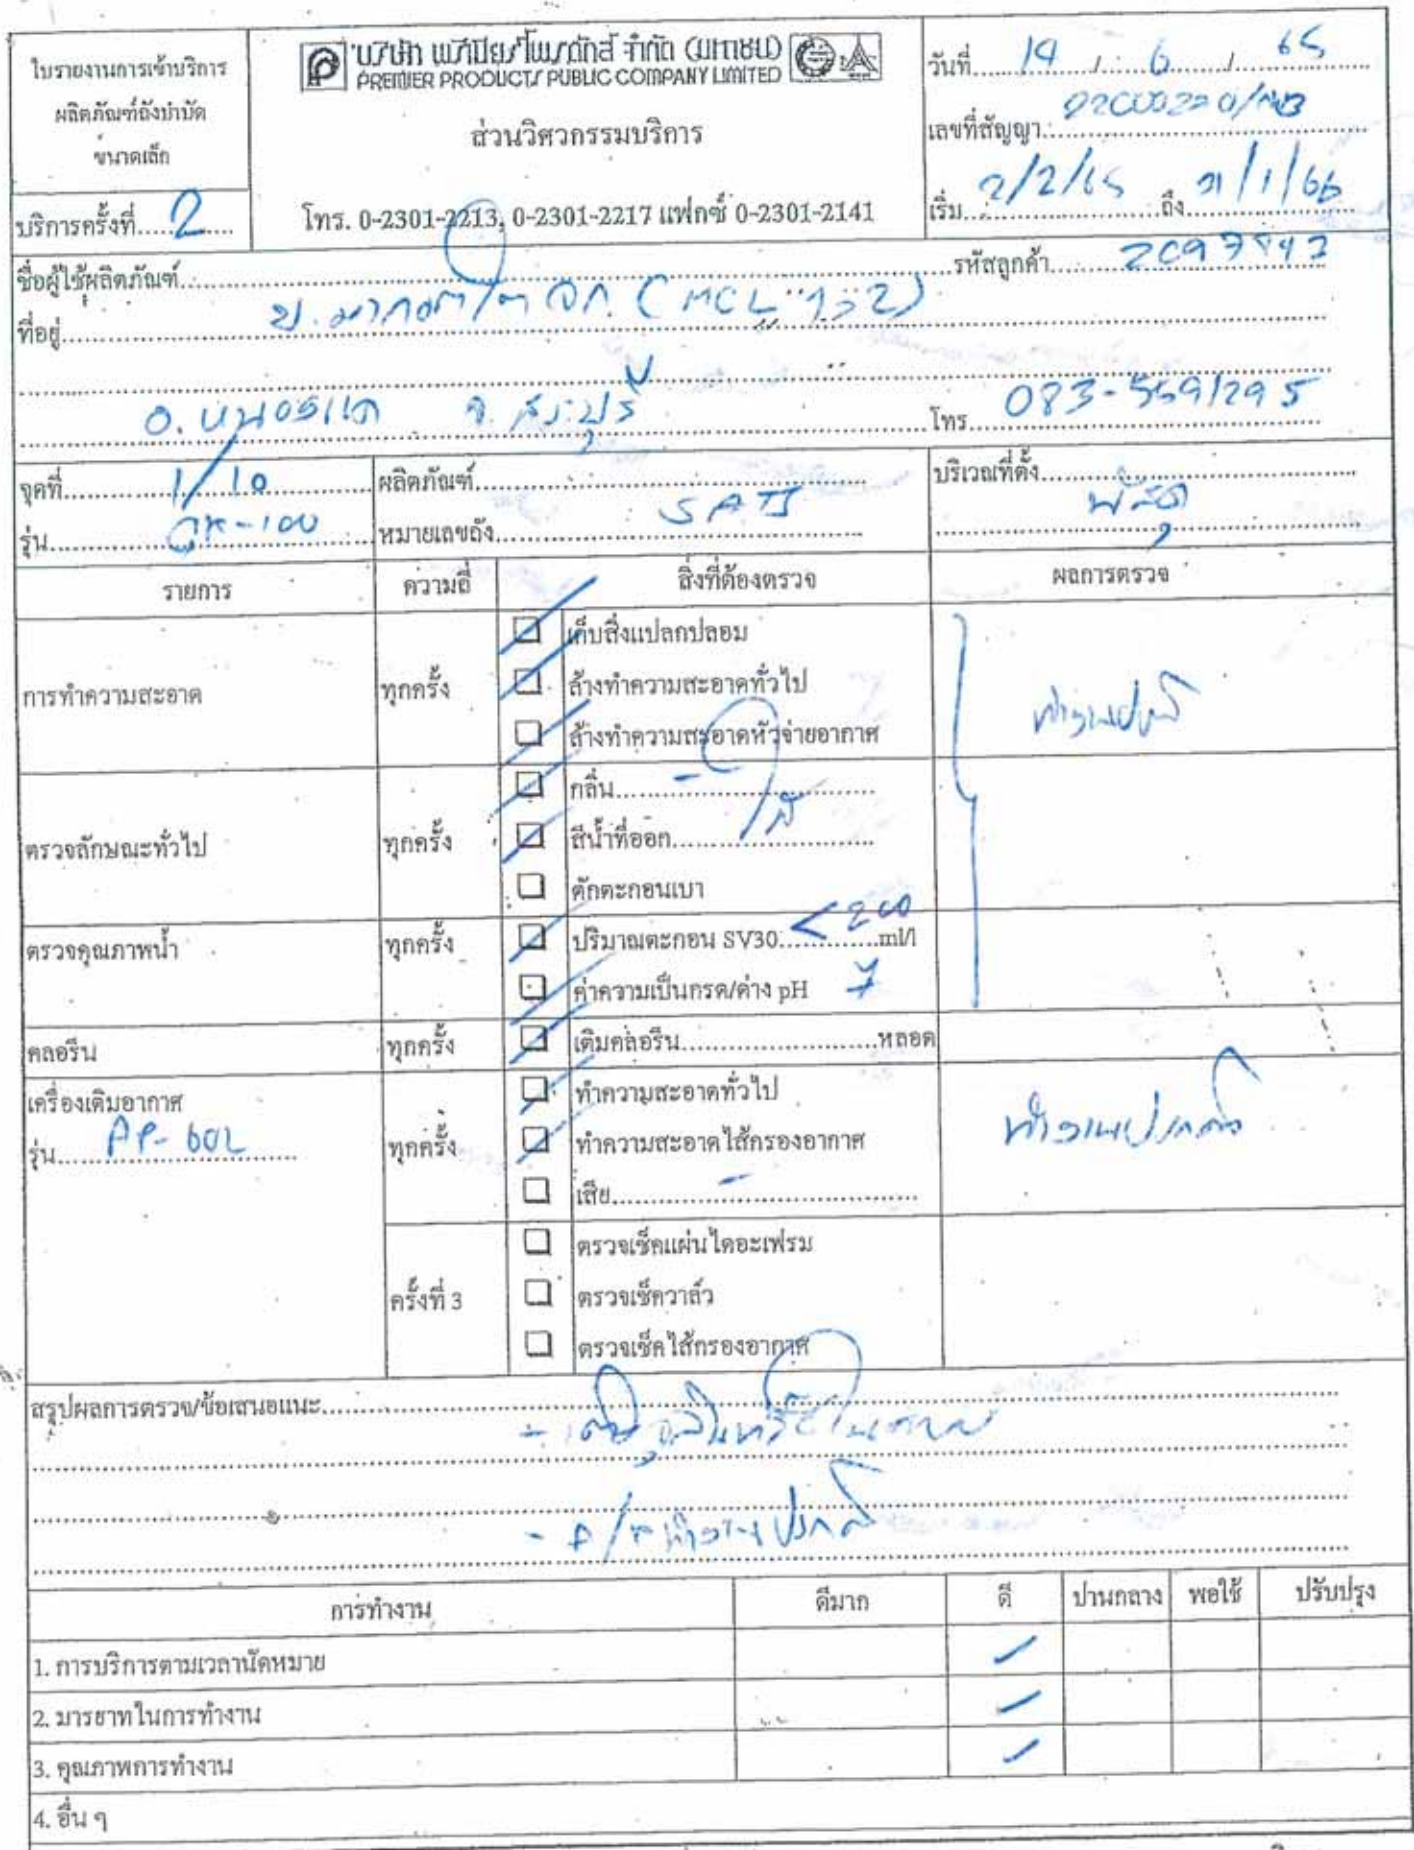 ใบรายงานการเข้าบริการ
ผลิตภัณฑ์ถังบำบัด
ขนาดเล็ก
บริการครั้งที่..... 2
บริษัท พรีเมียร์โพรดักส์ จำกัด (มหาชน)
PREMIER PRODUCTS PUBLIC COMPANY LIMITED
ส่วนวิศวกรรมบริการ
โทร. 0-2301-2213, 0-2301-2217 แฟกซ์ 0-2301-2141
วันที่ 14 / 6 / 65
เลขที่สัญญา
เริ่ม 2/2/65 ถึง 31/1/66
ชื่อผู้ใช้ผลิตภัณฑ์
รหัสลูกค้า
ที่อยู่
อ. หนองแค จ. สระบุรี
โทร. 083-5591295
จุดที่ 1/10
รุ่น
ผลิตภัณฑ์
หมายเลขถัง SATS
บริเวณที่ตั้ง
พัสดุ
รายการ ความถี่ สิ่งที่ต้องตรวจ ผลการตรวจ
การทำความสะอาด ทุกครั้ง
เก็บสิ่งแปลกปลอม
ล้างทำความสะอาดทั่วไป
ล้างทำความสะอาดหัวจ่ายอากาศ
ทำงานปกติ
ตรวจลักษณะทั่วไป ทุกครั้ง
กลิ่น..... -
สีน้ำที่ออก.....
ดักตะกอนเบา
ตรวจคุณภาพน้ำ ทุกครั้ง
ปริมาณตะกอน SV30..... <200 ml/l
ค่าความเป็นกรด/ด่าง pH 7
คลอรีน ทุกครั้ง เติมคลอรีน.....หลอด
เครื่องเติมอากาศ
รุ่น AP-60L
ทุกครั้ง
ทำความสะอาดทั่วไป
ทำความสะอาดไส้กรองอากาศ
เสีย..... -
ทำงานปกติ
ครั้งที่ 3
ตรวจเช็คแผ่นไดอะเฟรม
ตรวจเช็ควาล์ว
ตรวจเช็คไส้กรองอากาศ
สรุปผลการตรวจ/ข้อเสนอแนะ
- เติมจุลินทรีย์
- ทำงานปกติ
การทำงาน ดีมาก ดี ปานกลาง พอใช้ ปรับปรุง
1. การบริการตามเวลานัดหมาย
2. มารยาทในการทำงาน
3. คุณภาพการทำงาน
4. อื่น ๆ